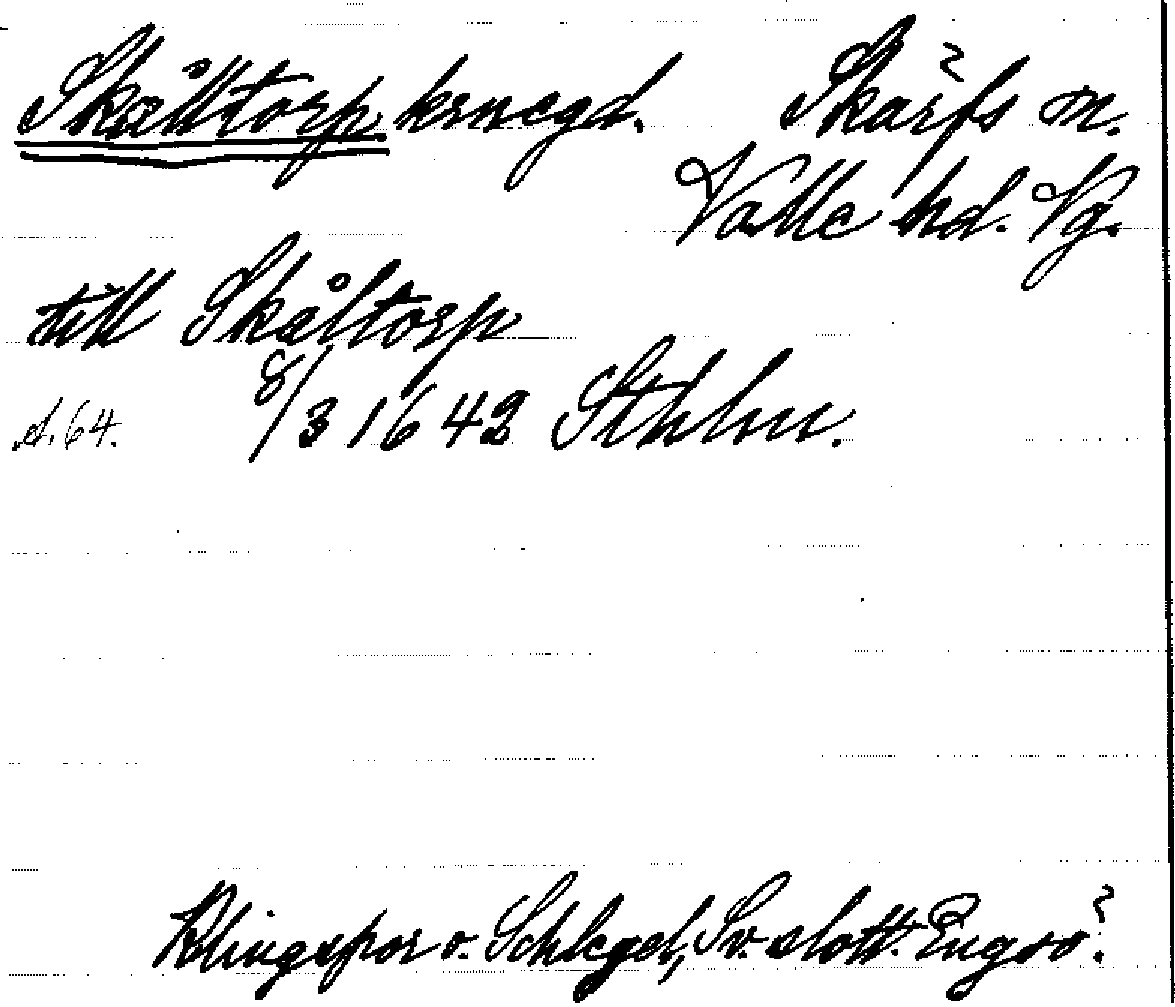 Skålltorp krnegd. Skärfs sn.
Valle hd. Vg.
till Skåltorp
d. 64. 8/3 1642 Sthlm.
Klingspor o. Schlegel, Sv. slott. Engsö.